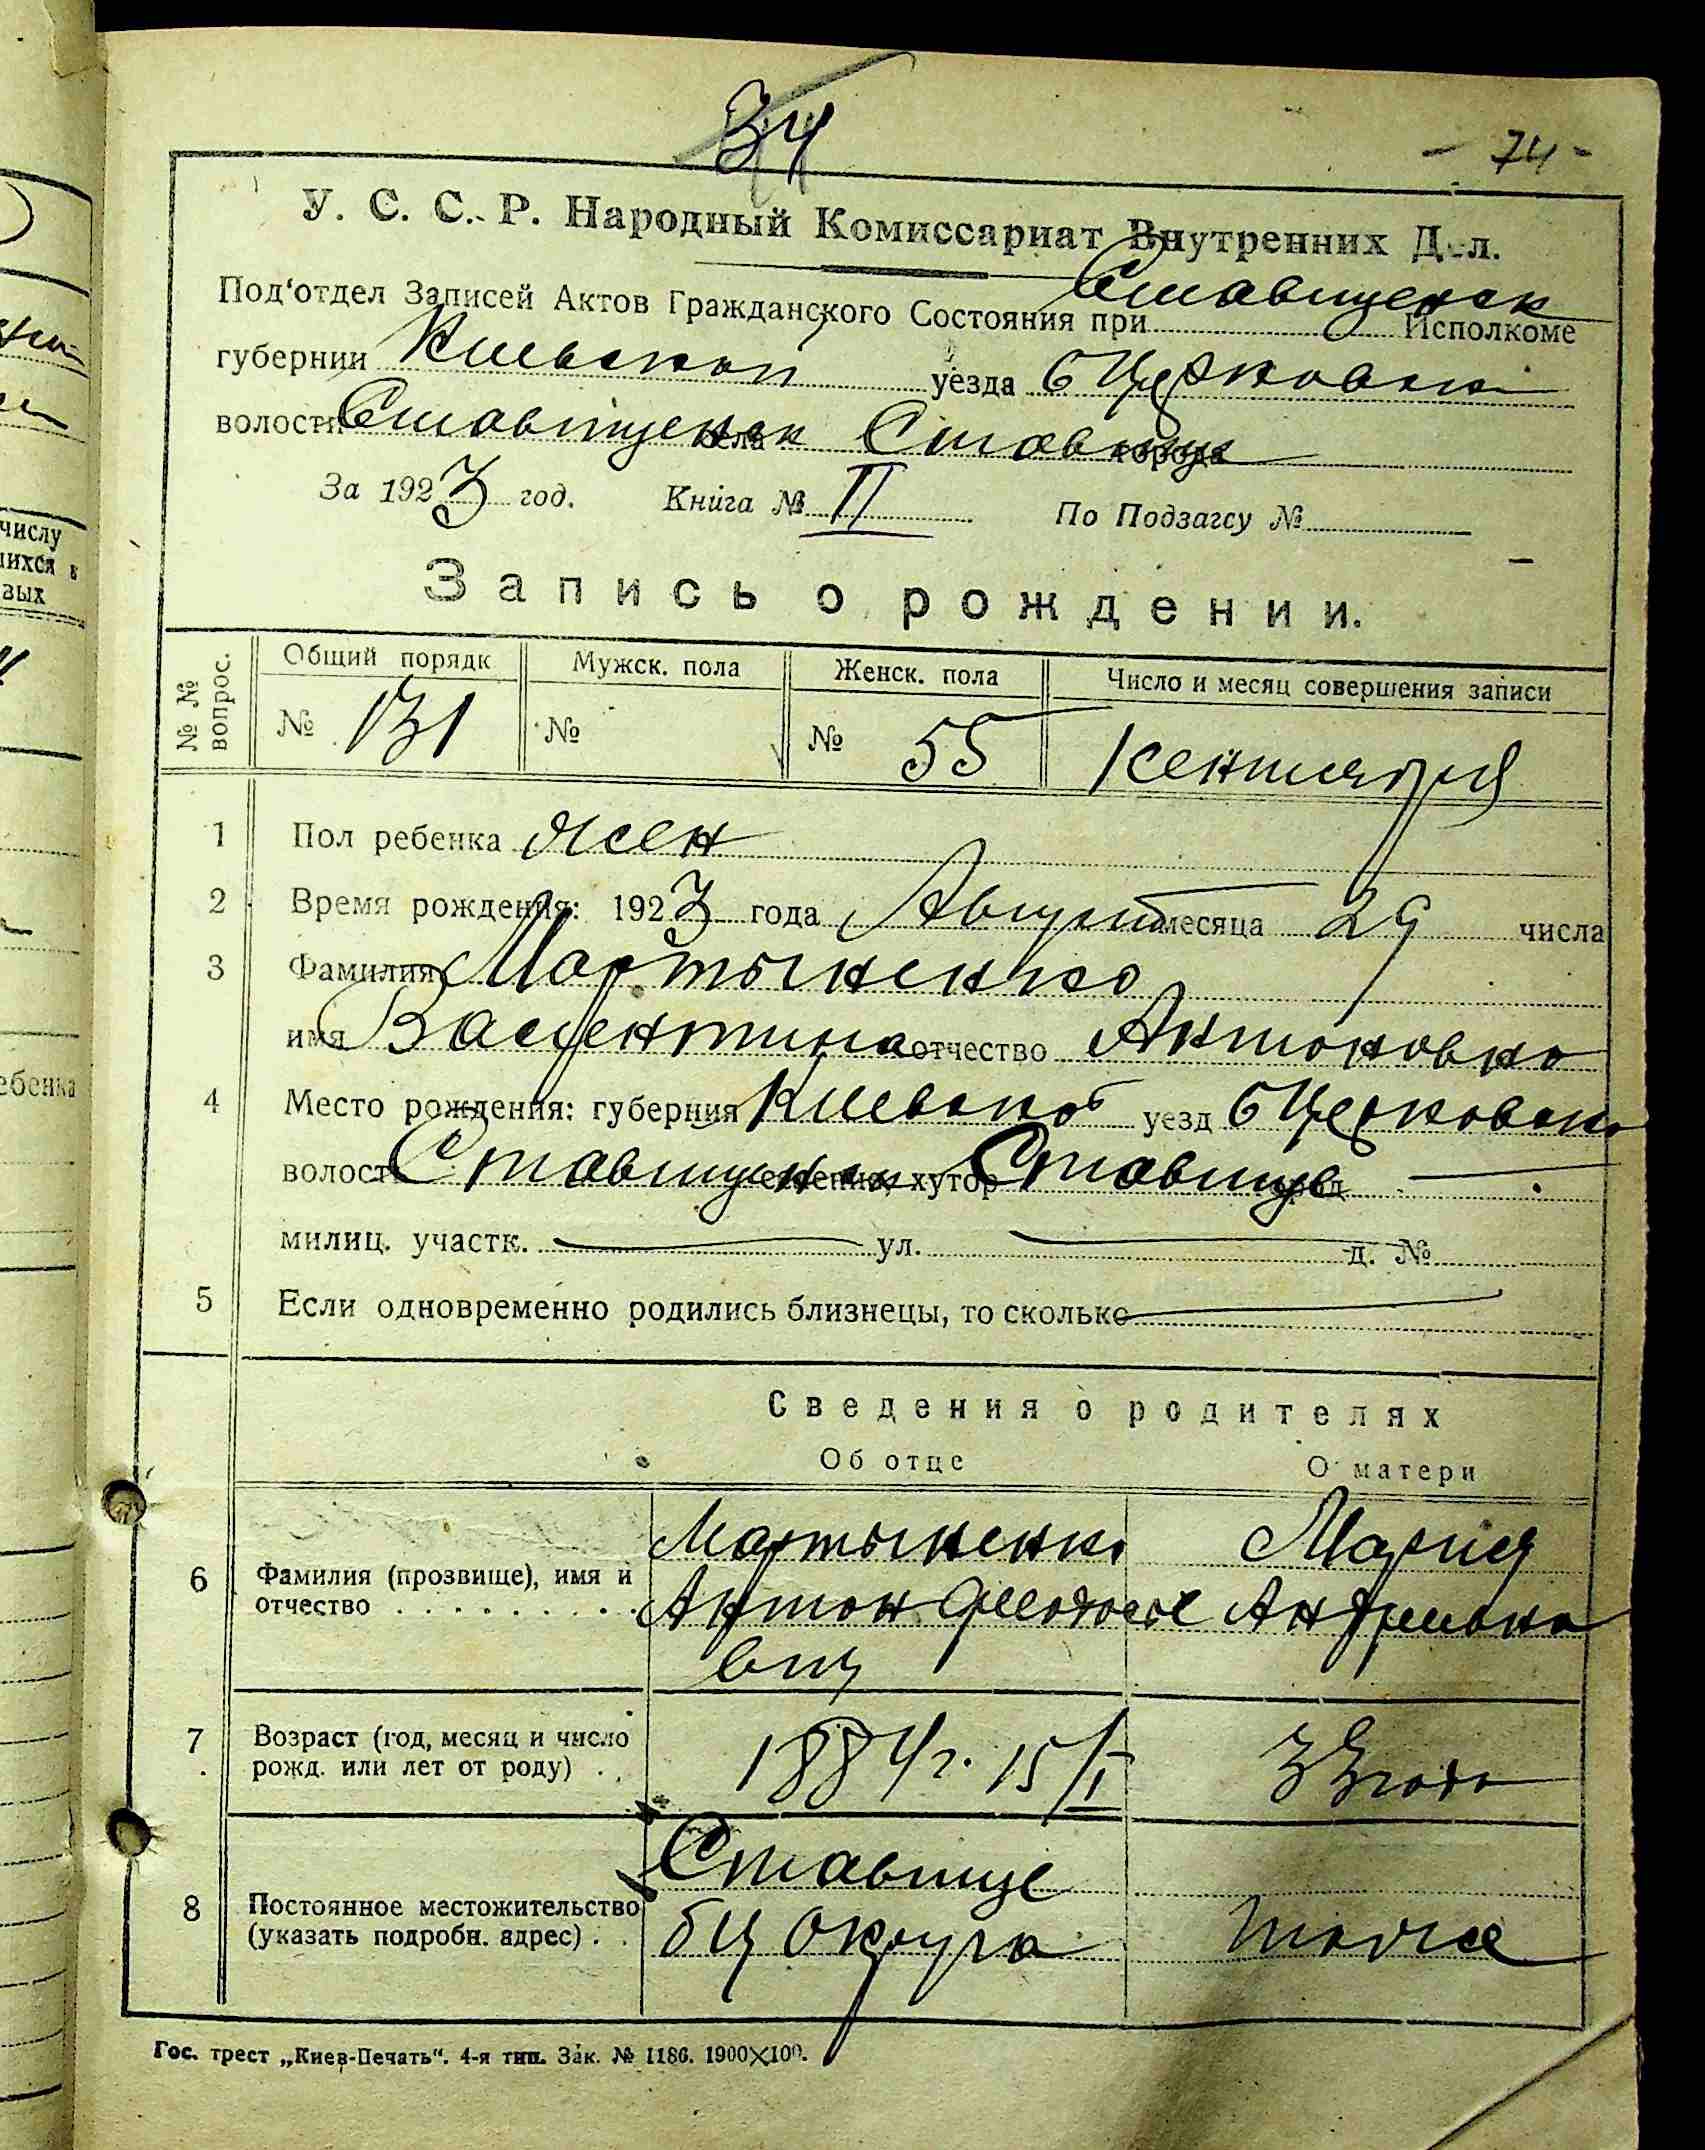 34
- 74 -
У. С. С. Р. Народный Комиссариат Внутренних Д-л.
Под'отдел Записей Актов Гражданского Состояния при Ставищенск Исполкоме
губернии Киевской уезда б Церковск
волости Ставищенск села Ставище города
За 1923 год. Книга № II По Подзагсу №
Запись о рождении.
№ № вопрос. Общий порядк Мужск. пола Женск. пола Число и месяц совершения записи
№ 131 № № 55 1 сентября
1 Пол ребенка жен
2 Время рождения: 1923 года Август месяца 29 числа
3 Фамилия Мартыненко
имя Валентина отчество Антоновна
4 Место рождения: губерния Киевской уезд б Церковск
волость Ставищенск хутор Ставище город
милиц. участк. ул. д. №
5 Если одновременно родились близнецы, то сколько
Сведения о родителях
Об отце О матери
Мартыненко Мария
6 Фамилия (прозвище), имя и отчество Антон Феодосие Андреевна
вич
7 Возраст (год, месяц и число рожд. или лет от роду) 1884 г. 15/I 33 года
Ставище
8 Постоянное местожительство (указать подробн. адрес) бц округа тоже
Гос. трест „Киев-Печать". 4-я тип. Зак. № 1186. 1900×100.
числу
зых
ебенка